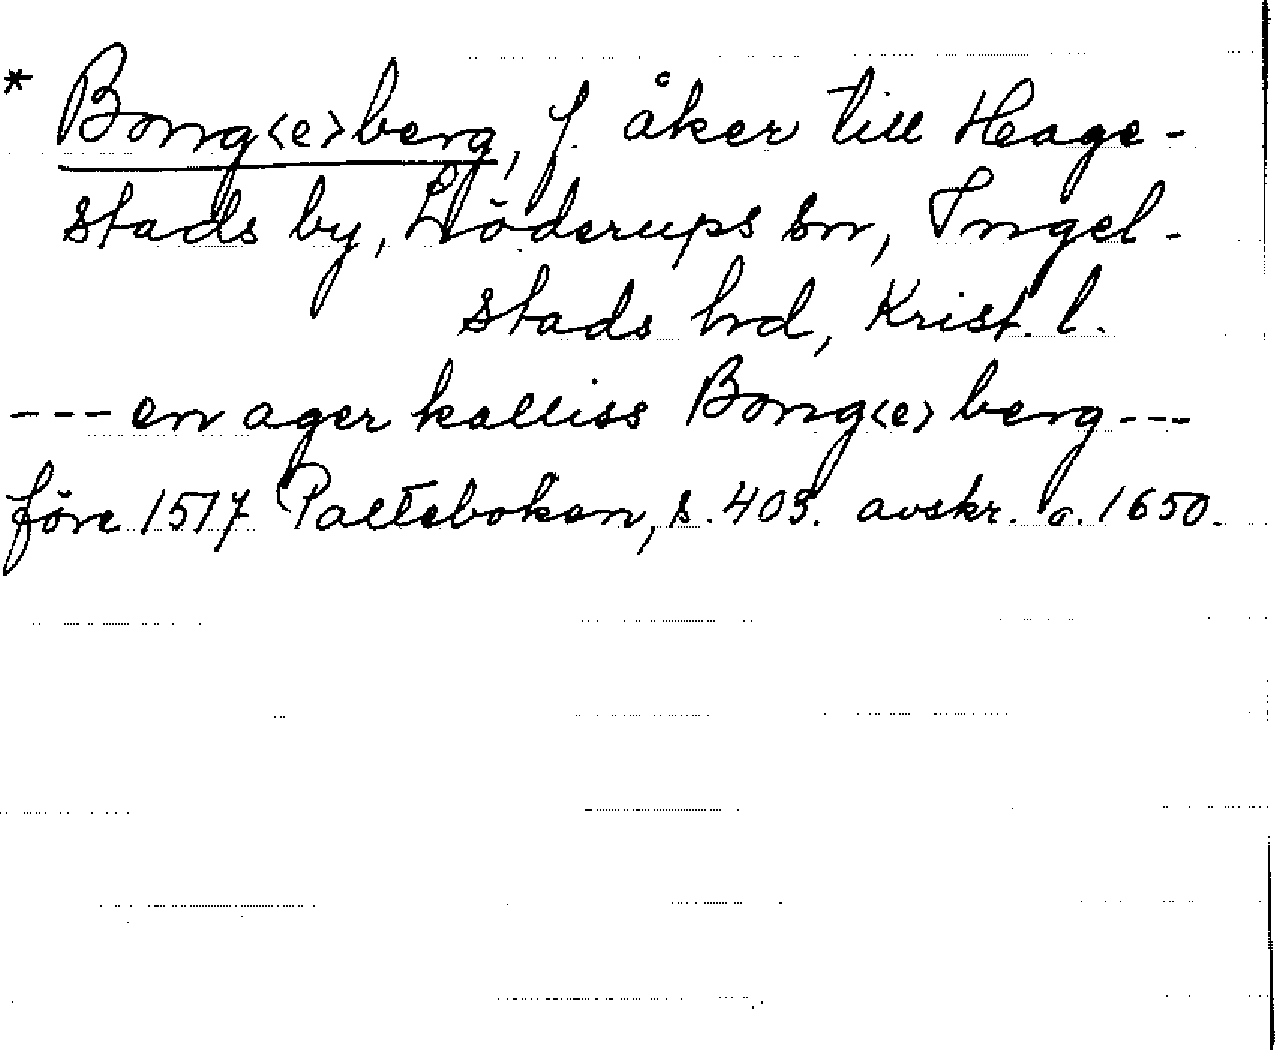 * Bong<e>berg, f. åker till Heage-
stads by, Löderups sn, Ingel-
stads hd, Krist. l.
--- en ager kalliss Bong<e>berg ---
före 1517 Palteboken, s. 403. avskr. o. 1650.